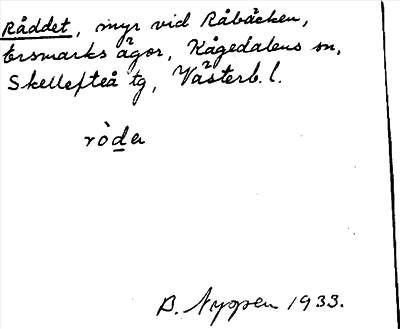 Råddet, myr vid Råbäcken,
Ersmarks ägor, Kågedalens sn,
Skellefteå tg, Västerb. l.
ròda
B. Nyppen 1933.